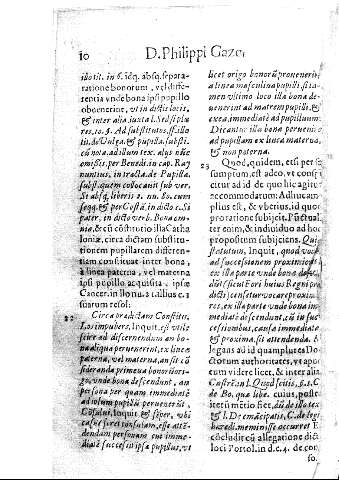 10 D. Philippi Gazet
illo tit. in 6. idq; absq; separa-
ratione bonorum, vel diffe-
rentia vnde bona ipsi pupillo
obuenerint, vt in dictis locis,
& inter alia, iuxta l. Sed si plu-
res. 10. §. Ad substitutos. ff. illo
tit. de Vulga. & pupilla. substi.
cū nota. ad illum tex. alijs nūc
omissis, per Benedi. in cap. Ray
nuntius, in tracta. de Pupilla.
subst. quem collocauit sub ver.
Si absq; liberis 2. nu. 80. cum
seqq. & per Costā in dicto c. Si
pater, in dicto verb. Bona om-
nia, & cū cōstitutio illa Catha
loniæ, circa dictam substitu-
tionem pupillarem differen-
tiam constituat inter bona,
à linea paterna, vel materna
ipsi pupillo acquisita, ipsæ
Cancer. in illo nu. 2. callius c. 1
fuersum resol.
22 Circa tradictam Constitu.
Los impubers, Inquit, est vtile
scire ad discernendum an bo-
na aliqua peruenerint, ex linea
paterna, vel materna, an sit cō
sideranda primeua bonorū ori-
go, vnde bona descendunt, an
persona per quam immediate
ad ipsum pupillū peruenerūt.
Cōsului, inquit & semper, vbi
casus fuit consului, esse attē-
dendam personam cui imme-
diate succesit ipse pupillus, vt
licet origo bonorū prouenerit
à linea masculina pupilli, si ta-
men vltimo loco illa bona de-
uenerint ad matrem pupilli, &
ex ea, immediate ad pupillum:
Dicantur illa bona peruenire
ad pupillam ex linea materna,
& non paterna.
23 Quod, quidem, etsi per se
sumptum, est adeo, vt conse
citur ad id de quo hic agitur
accommodatum: Adhuc am-
plius est, & vberius, id quod
pro ratione subijcit. Punctual
ter enim, & indiuiduo ad hoc
propositum subijciens. Quis
statutum, Inquit, quod vocat
ad successionem proximiores
ex illa parte vnde bona desce-
dūt sicut Fori huius Regni præ
dicti, censetur vocare proximio
res, ex illa parte vnde bona im-
mediatè descendunt, cū in suc-
cessionibus, causa immediata,
& proxima, sit attendenda. &
legans ad id quamplures Do-
ctorum authoritates, vt apud
cum videre licet, & inter alia
Cusrēn. in l. Quod scitis, §. 1. C.
de Bo. quæ libe. cuius, posite-
itetū mētio fiet, dū de illo tex
& l. De emācipatis, C. de leg.
hæredi, meminisse occurret E
cōcludit cū allegatione dicti
loci Portol. in d. c. 4. de con
so.